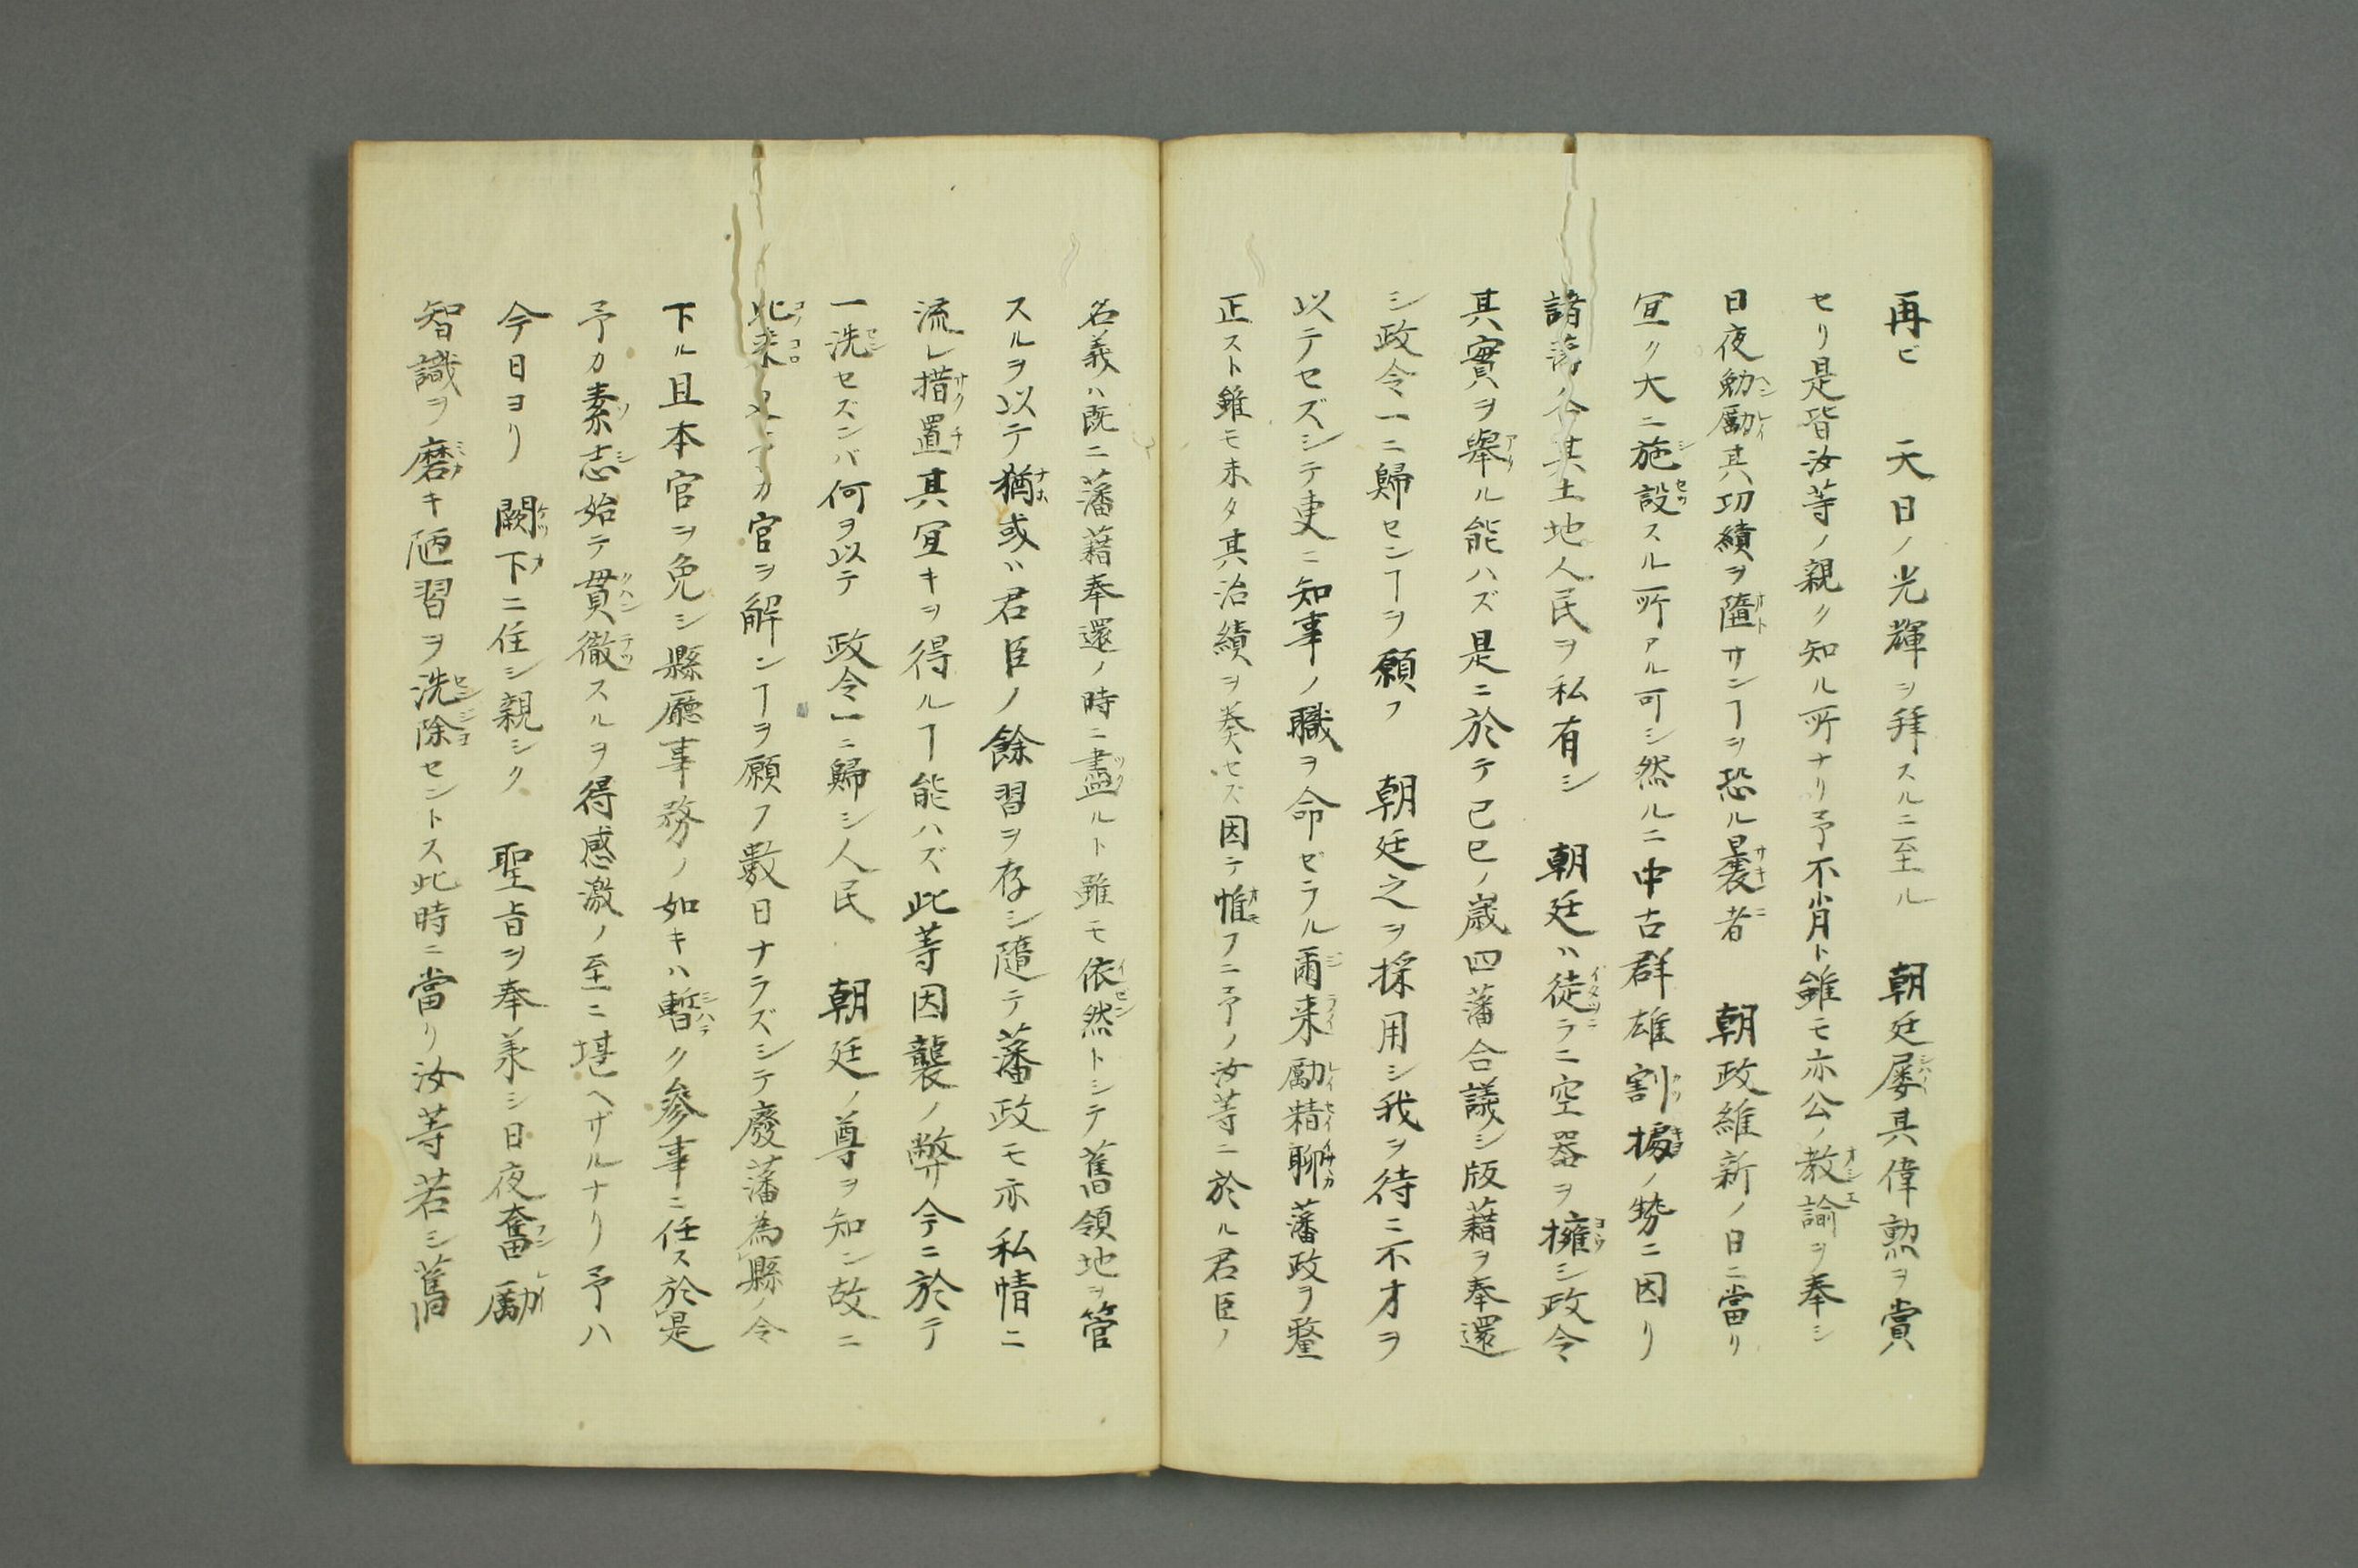 再ビ　天日ノ光輝ヲ拜スルニ至ル　朝廷屡其偉勲ヲ賞
セリ是皆汝等ノ親ク知ル所ナリ予不肖ト雖モ亦公ノ教諭ヲ奉シ
日夜勉勵其功績ヲ墮サンヿヲ恐ル曩者　朝政維新ノ日ニ當リ
宜ク大ニ施設スル所アル可シ然ルニ中古群雄割據ノ勢ニ因リ
諸藩各其土地人民ヲ私有シ　朝廷ハ徒ラニ空器ヲ擁シ政令
其實ヲ舉ル能ハズ是ニ於テ己巳ノ歳四藩合議シ版籍ヲ奉還
シ政令一ニ歸センヿヲ願フ　朝廷之ヲ採用シ我ヲ待ニ不才ヲ
以テセズシテ更ニ知事ノ職ヲ命ゼラル爾来勵精聊藩政ヲ釐
正スト雖モ未タ其治績ヲ奏セズ因テ惟フニ予ノ汝等ニ於ル君臣ノ
名義ハ既ニ藩籍奉還ノ時ニ盡ルト雖モ依然トシテ舊領地ヲ管
スルヲ以テ猶或ハ君臣ノ餘習ヲ存シ隨テ藩政モ亦私情ニ
流レ措置其宜キヲ得ルヿ能ハズ此等因襲ノ弊今ニ於テ
一洗セズンバ何ヲ以テ　政令一ニ歸シ人民　朝廷ノ尊ヲ知ン故ニ
此来 カ官ヲ解ンヿヲ願フ數日ナラズシテ廢藩為縣ノ令
下ル且本官ヲ免シ縣廳事務ノ如キハ暫ク參事ニ任ス於是
予カ素志始テ貫徹スルヲ得感激ノ至ニ堪ヘザルナリ予ハ
今日ヨリ　闕下ニ住シ親シク　聖旨ヲ奉羕シ日夜奮勵
智識ヲ磨キ陋習ヲ洗除セントス此時ニ當リ汝等若シ舊